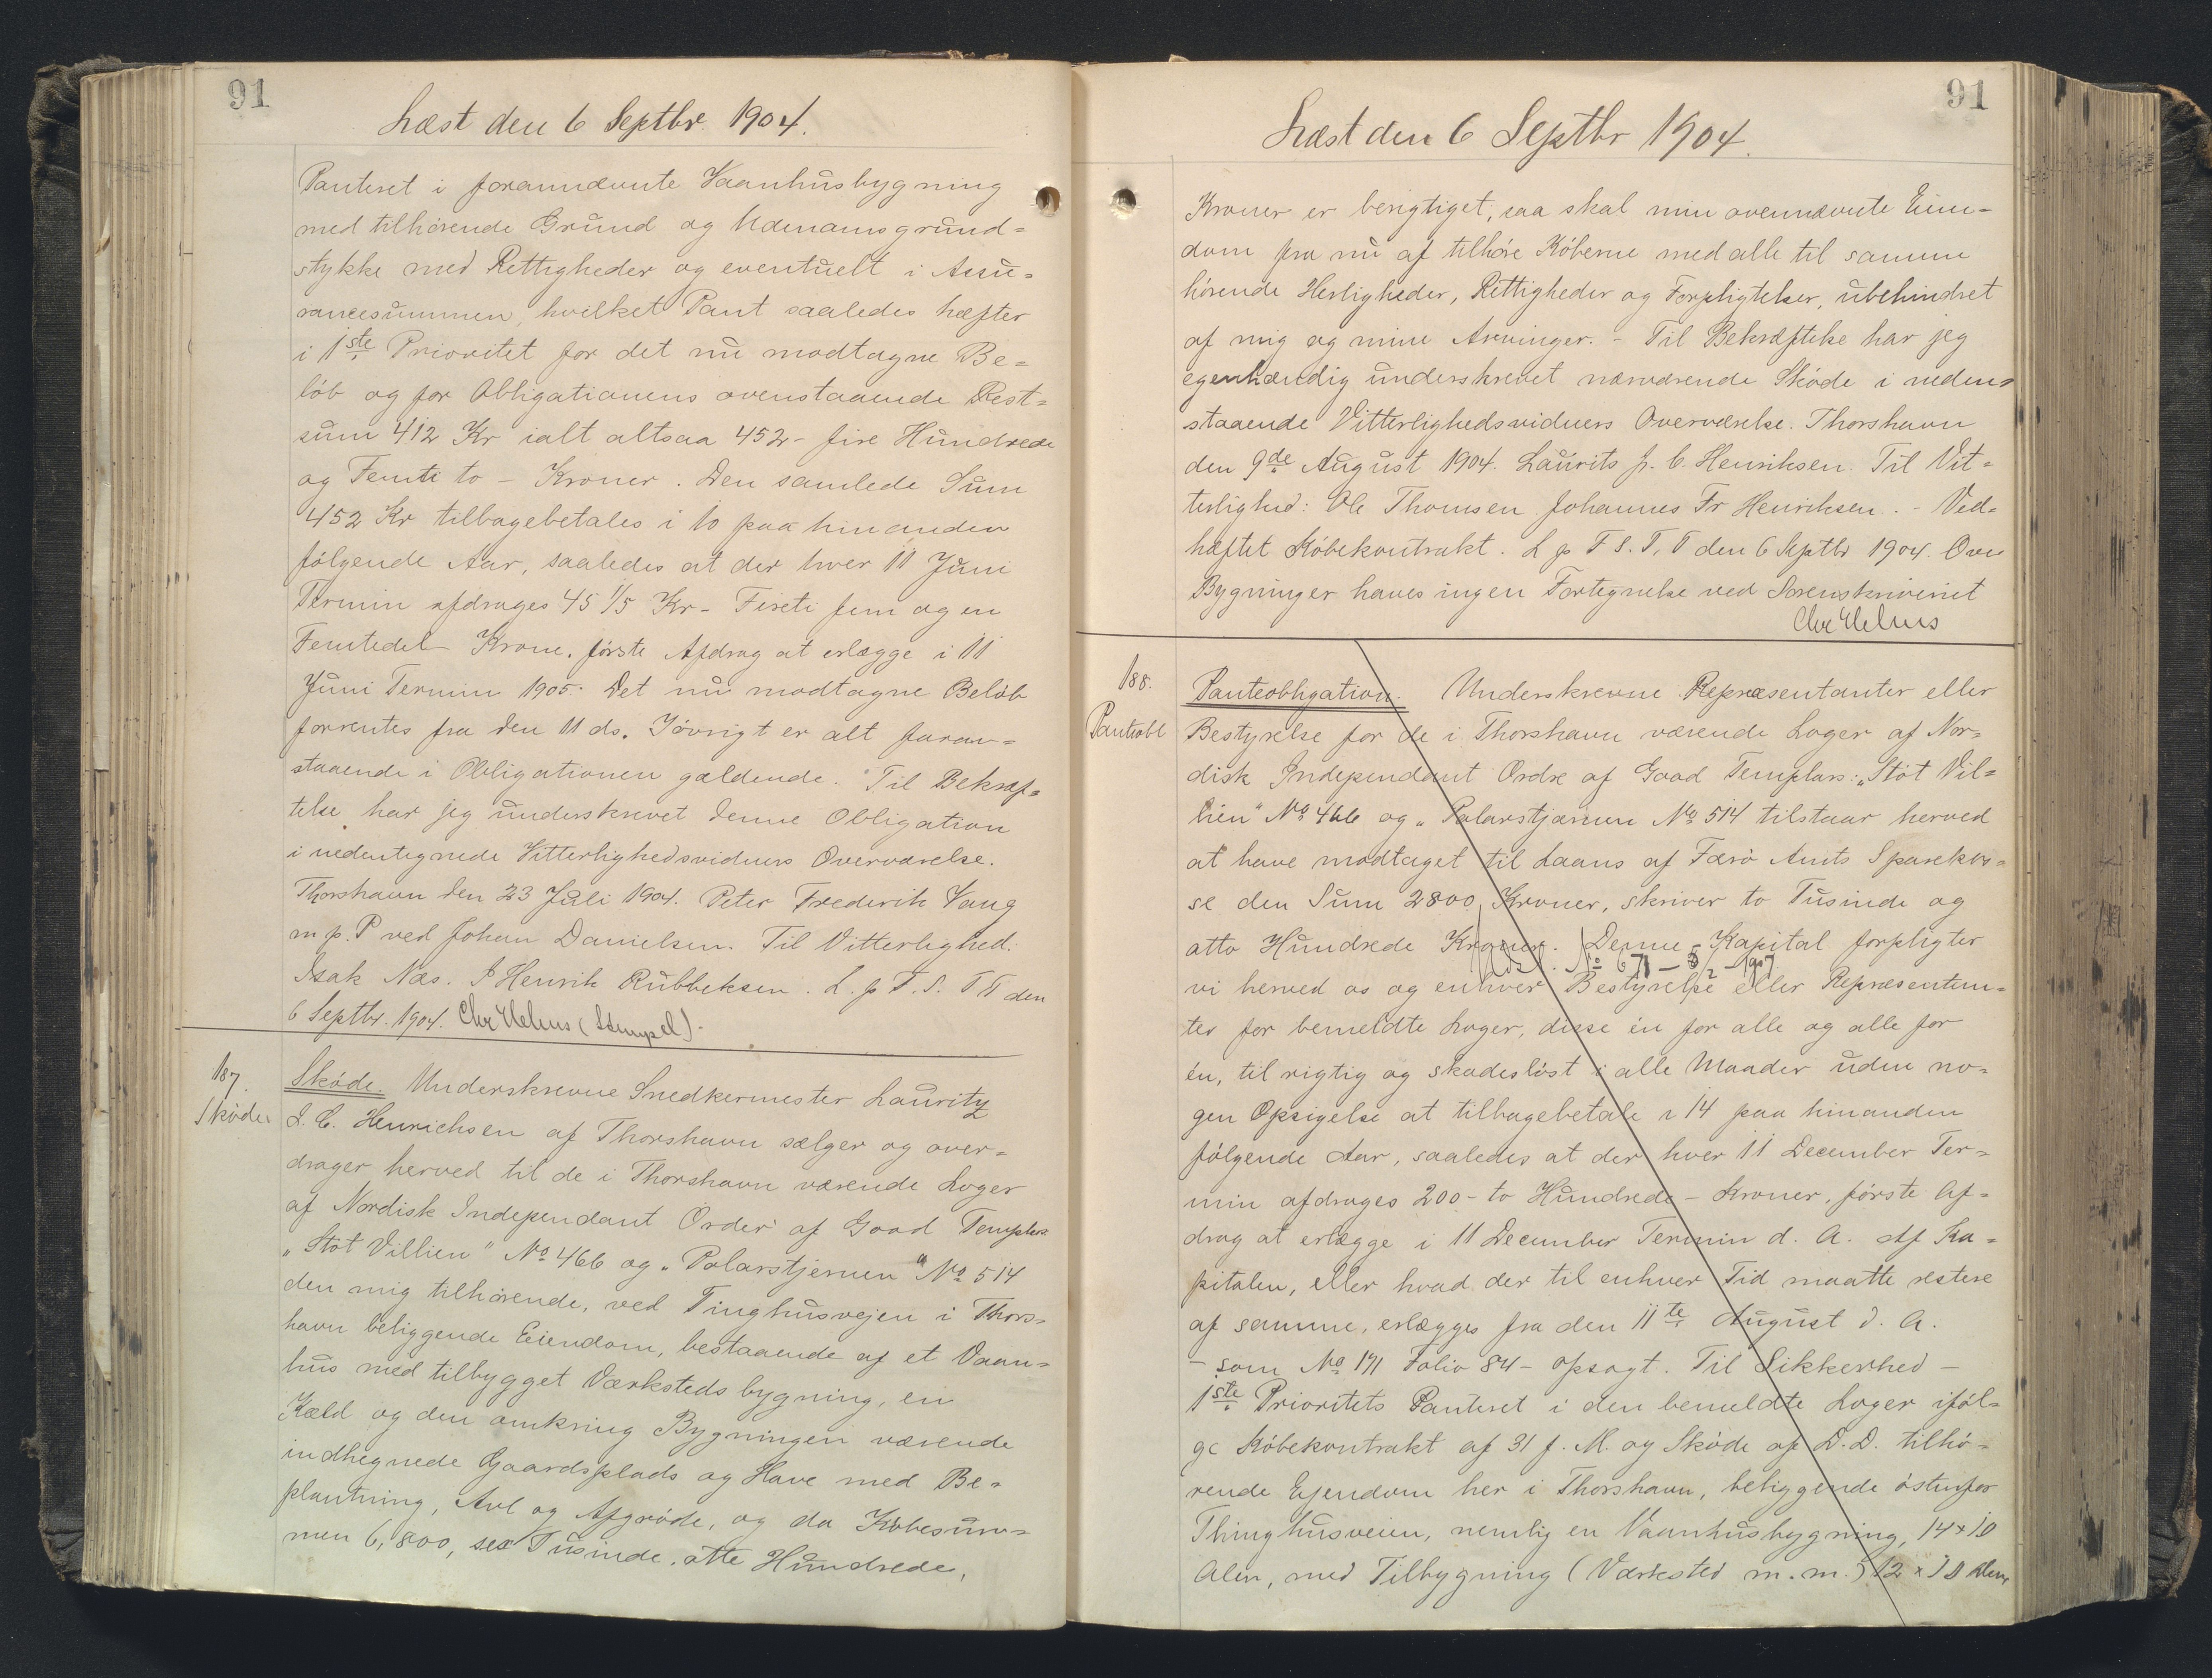 91
Læst den 6 Septbr. 1904.
Panteret i forannævnte Vaanhusbygning
med tilhørende Grund og Udenamsgrund=
stykke med Rettigheder og eventuelt i Assu=
rancesummen, hvilket Pant saaledes hæfter
i 1ste Prioritet for det nu modtagne Be=
løb og for Obligationens ovenstaaende Rest=
sum 412 Kr ialt altsaa 452 - fire Hundrede
og Femti to - Kroner. Den samlede Sum
452 Kr tilbagebetales i 10 paa hinanden
følgende Aar, saaledes at der hver 11 Juni
Termin afdrages 45 1/5 Kr - Fireti fem og en
Femtedel - Krone. første Afdrag at erlægge i 11
Juni Termin 1905. Det nu modtagne Beløb
forrentes fra den 11 ds. Iøvrigt er alt foran=
staaende i Obligationen gældende. Til Bekræf=
telse har jeg underskrevet denne Obligation
i nedentegnede Vitterlighedsvidners Overværelse.
Thorshavn den 23 Juli 1904. Peter Frederik Vang
m. p. P ved Johan Danielsen. Til Vitterlighed:
Isak Næs. J Henrik Rubbeksen. L. p F. S. T T den
6 Septbr. 1904. Chr Ulelius (Stempel).
187.
Skøde
Skøde. Underskrevne Snedkermester Lauritz
J. C. Henrichsen af Thorshavn sælger og over=
drager herved til de i Thorshavn værende Loger
af Nordisk Independant Order af Good Templars
"Støt Villien" No 466 og "Polarstjernen" No 514
den mig tilhørende, ved Tinghusvejen i Thors=
havn beliggende Eiendom, bestaaende af et Vaan=
hus med tilbygget Værkstedsbygning, en
Kæld og den omkring Bygningen værende
indhegnede Gaardsplads og Have med Be=
plantning, Avl og Afgrøde, og da Købesum=
men 6,800, sex Tusinde, otte Hundrede,
91
Læst den 6 Septbr 1904.
Kroner er berigtiget, saa skal min ovennævnte Eien=
dom fra nu af tilhøre Køberne med alle til samme
hørende Herligheder, Rettigheder og Forpligtelser, ubehindret
af mig og mine Arvinger. - Til Bekræftelse har jeg
egenhændig underskrevet nærværende Skøde i neden=
staaende Vitterlighedsvidners Overværelse. Thorshavn
den 9de August 1904. Laurits J. C. Henriksen. Til Vit=
terlighed: Ole Thomsen. Johannes Fr Henriksen. - Ved=
hæftet Købekontrakt. L p F S. T. T den 6 Septbr 1904. Over
Bygninger haves ingen Fortegnelse ved Sorenskriveriet
Chr Ulelius
188.
Panteobl
Panteobligation. Underskrevne Repræsentanter eller
Bestyrelse for de i Thorshavn værende Loger af Nor=
disk Independant Ordre af Good Templars: "Støt Vil=
lien" No 466 og "Polarstjærnen No 514 tilstaar herved
at have modtaget til Laans af Færø Amts Sparekas=
se den Sum 2800 Kroner, skriver to Tusinde og
otto Hundrede Kroner. Denne Kapital forpligter
Udsl. No 671 - 5/2 - 1907
vi herved os og enhver Bestyrelse eller Repræsentan=
ter for bemeldte Loger, disse én for alle og alle for
én, til rigtig og skadesløst i alle Maader uden no=
gen Opsigelse at tilbagebetale i 14 paa hinanden
følgende Aar, saaledes at der hver 11 December Ter=
min afdrages 200 - to Hundrede - Kroner, første Af=
drag at erlægge i 11 December Termin d. A. Af Ka=
pitalen, eller hvad der til enhver Tid maatte restere
af samme, erlægges fra den 11te August d. A.
- som No 171 Folio 84 - opsagt. Til Sikkerhed -
1ste Prioritets Panteret i den bemeldte Loger iføl=
ge Købekontrakt af 31 f. M. og Skøde af D. D. tilhø=
rende Ejendom her i Thorshavn, beliggende østenfor
Thinghusveien, nemlig en Vaanhusbygning, 14 x 10
Alen, med Tilbygning (Værksted m. m.) 12 x 10 Alen